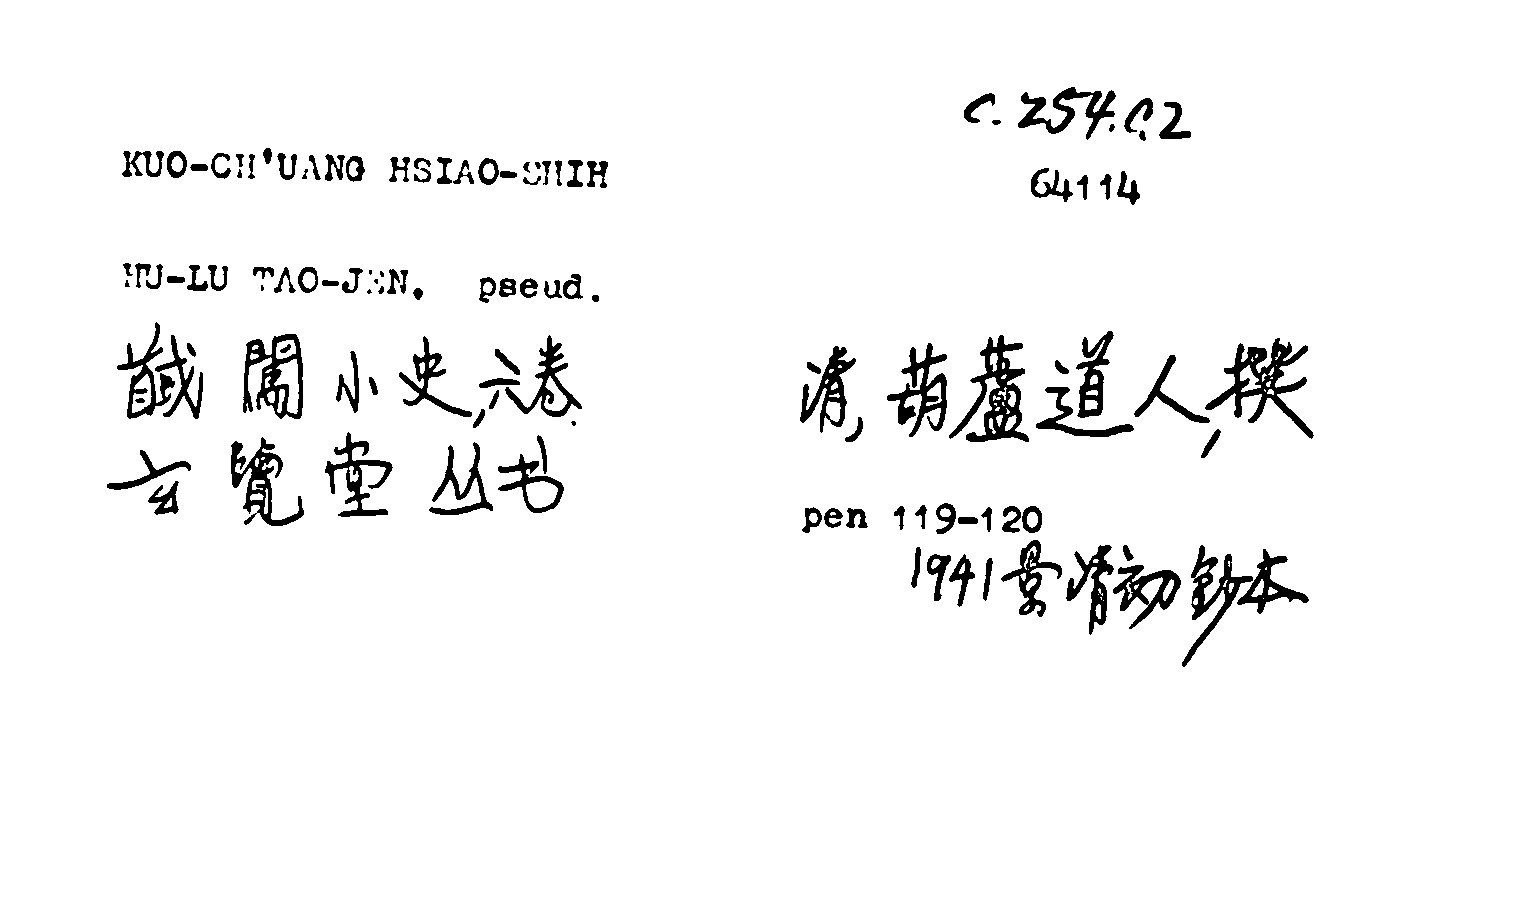 C.254.C.2
64114
KUO-CH'UANG HSIAO-SHIH
HU-LU TAO-JEN. pseud.
馘闖小史,六卷.
清,葫蘆道人,撰
玄覽堂丛书
pen 119-120
1941景清初鈔本